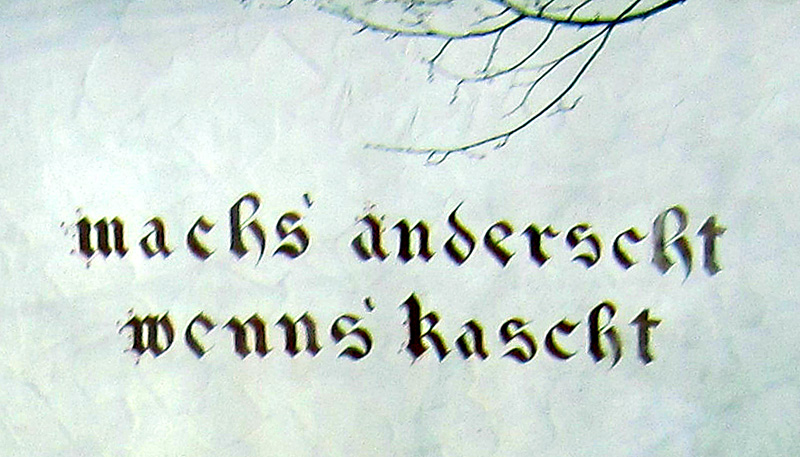 machs' anderscht
wenns' kascht